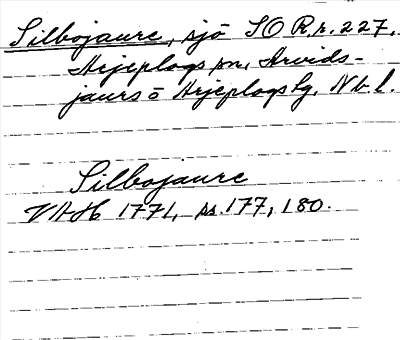 Silbojaure, sjö SO R.r. 227,
Arjeplogs sn, Arvids-
jaurs o Arjeplogs lg, Nb. l.
Silbojaure
VAH 1771, ss. 177, 180.